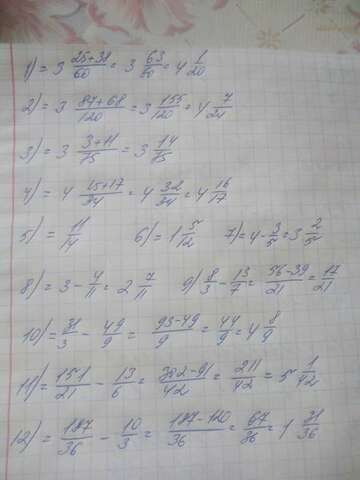 1) = 3 25+38/60 = 3 63/60 = 4 1/20
2) = 3 87+68/120 = 3 155/120 = 4 7/24
3) = 3 3+11/15 = 3 14/15
4) = 4 15+17/34 = 4 32/34 = 4 16/17
5) = 11/14 6) = 1 5/12 7) = 4 - 3/5 = 3 2/5
8) = 3 - 4/11 = 2 7/11 9) 8/3 - 13/7 = 56-39/21 = 17/21
10) = 31/3 - 49/9 = 93-49/9 = 44/9 = 4 8/9
11) = 151/21 - 13/6 = 302-91/42 = 211/42 = 5 1/42
12) = 187/36 - 10/3 = 187-120/36 = 67/36 = 1 31/36